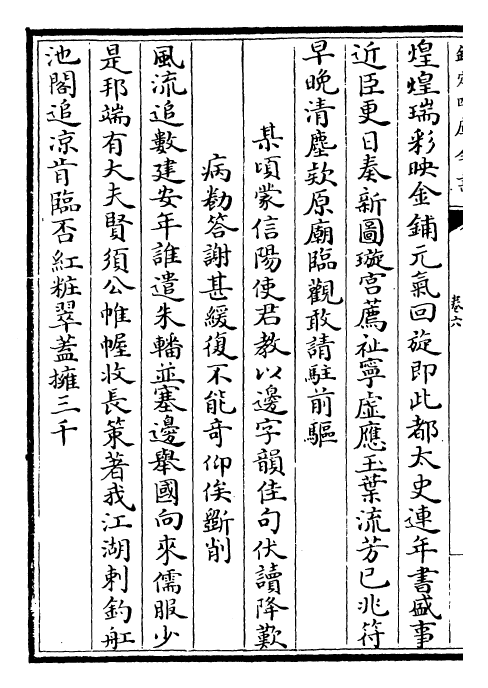 欽定四庫全書
卷六
煌煌瑞彩映金鋪元氣回旋即此都太史連年書盛事
近臣更日奏新圖璇宮薦祉寧虛應玉葉流芳已兆符
早晚清塵欵原廟臨觀敢請駐前驅
某頃蒙信陽使君教以邊字韻佳句伏讀降歎
病勌答謝甚緩復不能奇仰俟斲削
風流追數建安年誰遣朱轓並塞邊舉國向來儒服少
是邦端有大夫賢須公帷幄收長策著我江湖刺釣舡
池閣追凉肯臨否紅粧翠蓋擁三千